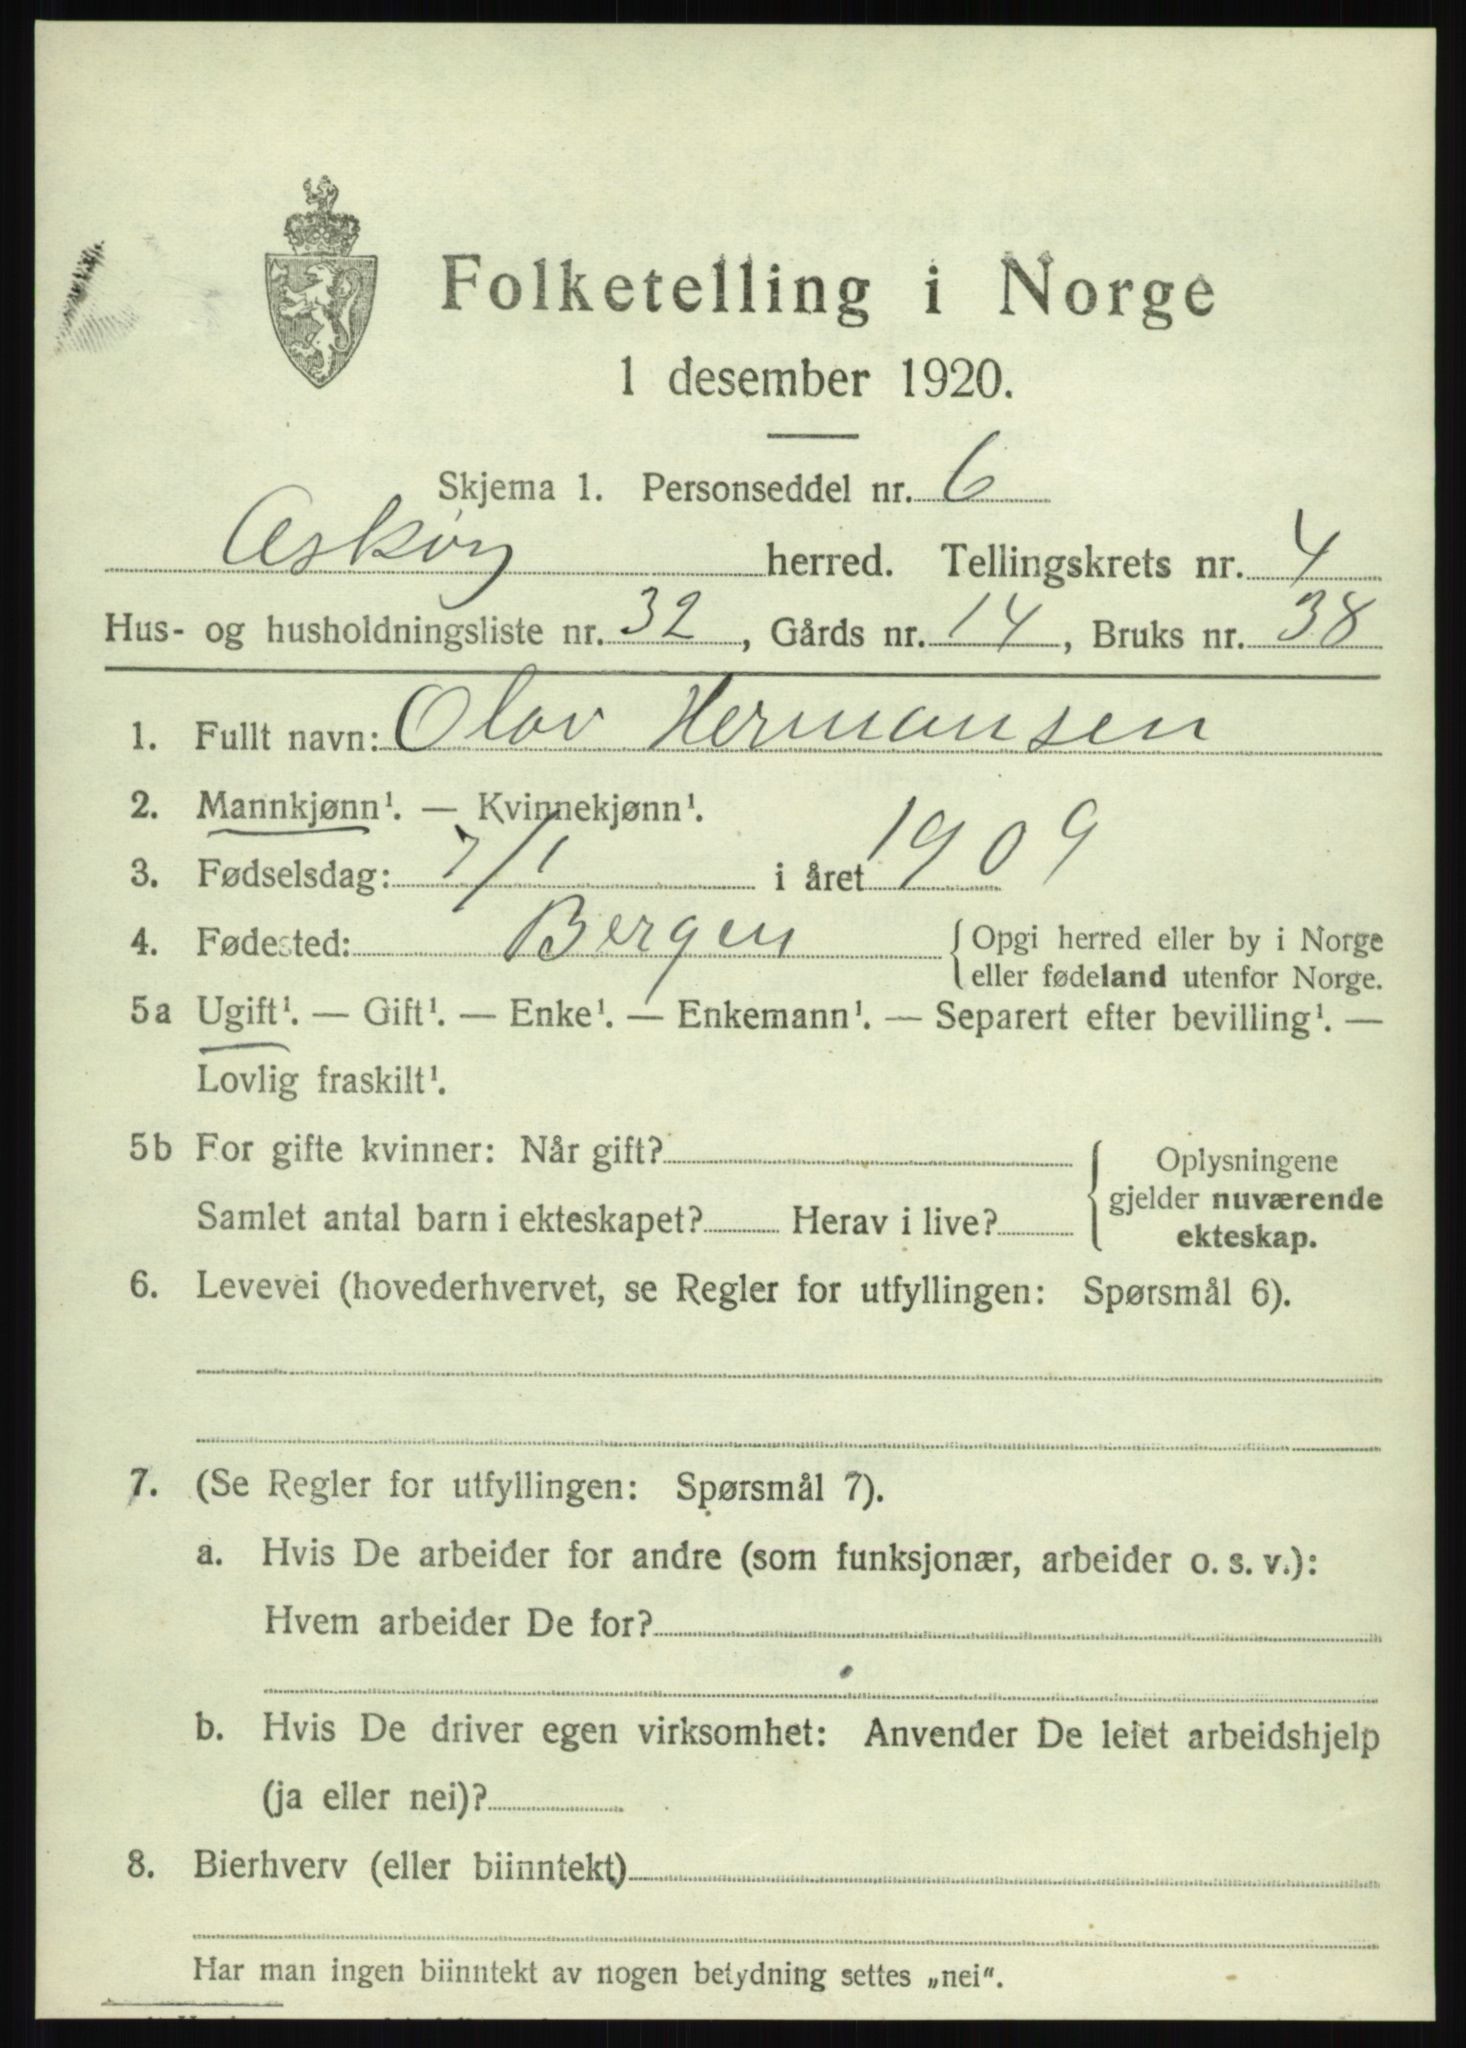 Folketelling i Norge
1 desember 1920.
Skjema 1. Personseddel nr. 6
Askøy herred. Tellingskrets nr. 4
Hus- og husholdningsliste nr. 32, Gårds nr. 14, Bruks nr. 38
1. Fullt navn: Olav Hermansen
2. Mannkjønn¹. — Kvinnekjønn¹.
3. Fødselsdag: 7/1 i året 1909
4. Fødested: Bergen {Opgi herred eller by i Norge
eller fødeland utenfor Norge.
5a Ugift¹. — Gift¹. — Enke¹. — Enkemann¹. — Separert efter bevilling¹. —
Lovlig fraskilt¹.
5b For gifte kvinner: Når gift?
Samlet antal barn i ekteskapet? Herav i live?
{Oplysningene
gjelder nuværende
ekteskap.
6. Levevei (hovederhvervet, se Regler for utfyllingen: Spørsmål 6).
7. (Se Regler for utfyllingen: Spørsmål 7).
a. Hvis De arbeider for andre (som funksjonær, arbeider o. s. v.):
Hvem arbeider De for?
b. Hvis De driver egen virksomhet: Anvender De leiet arbeidshjelp
(ja eller nei)?
8. Bierhverv (eller biinntekt)
Har man ingen biinntekt av nogen betydning settes „nei“.